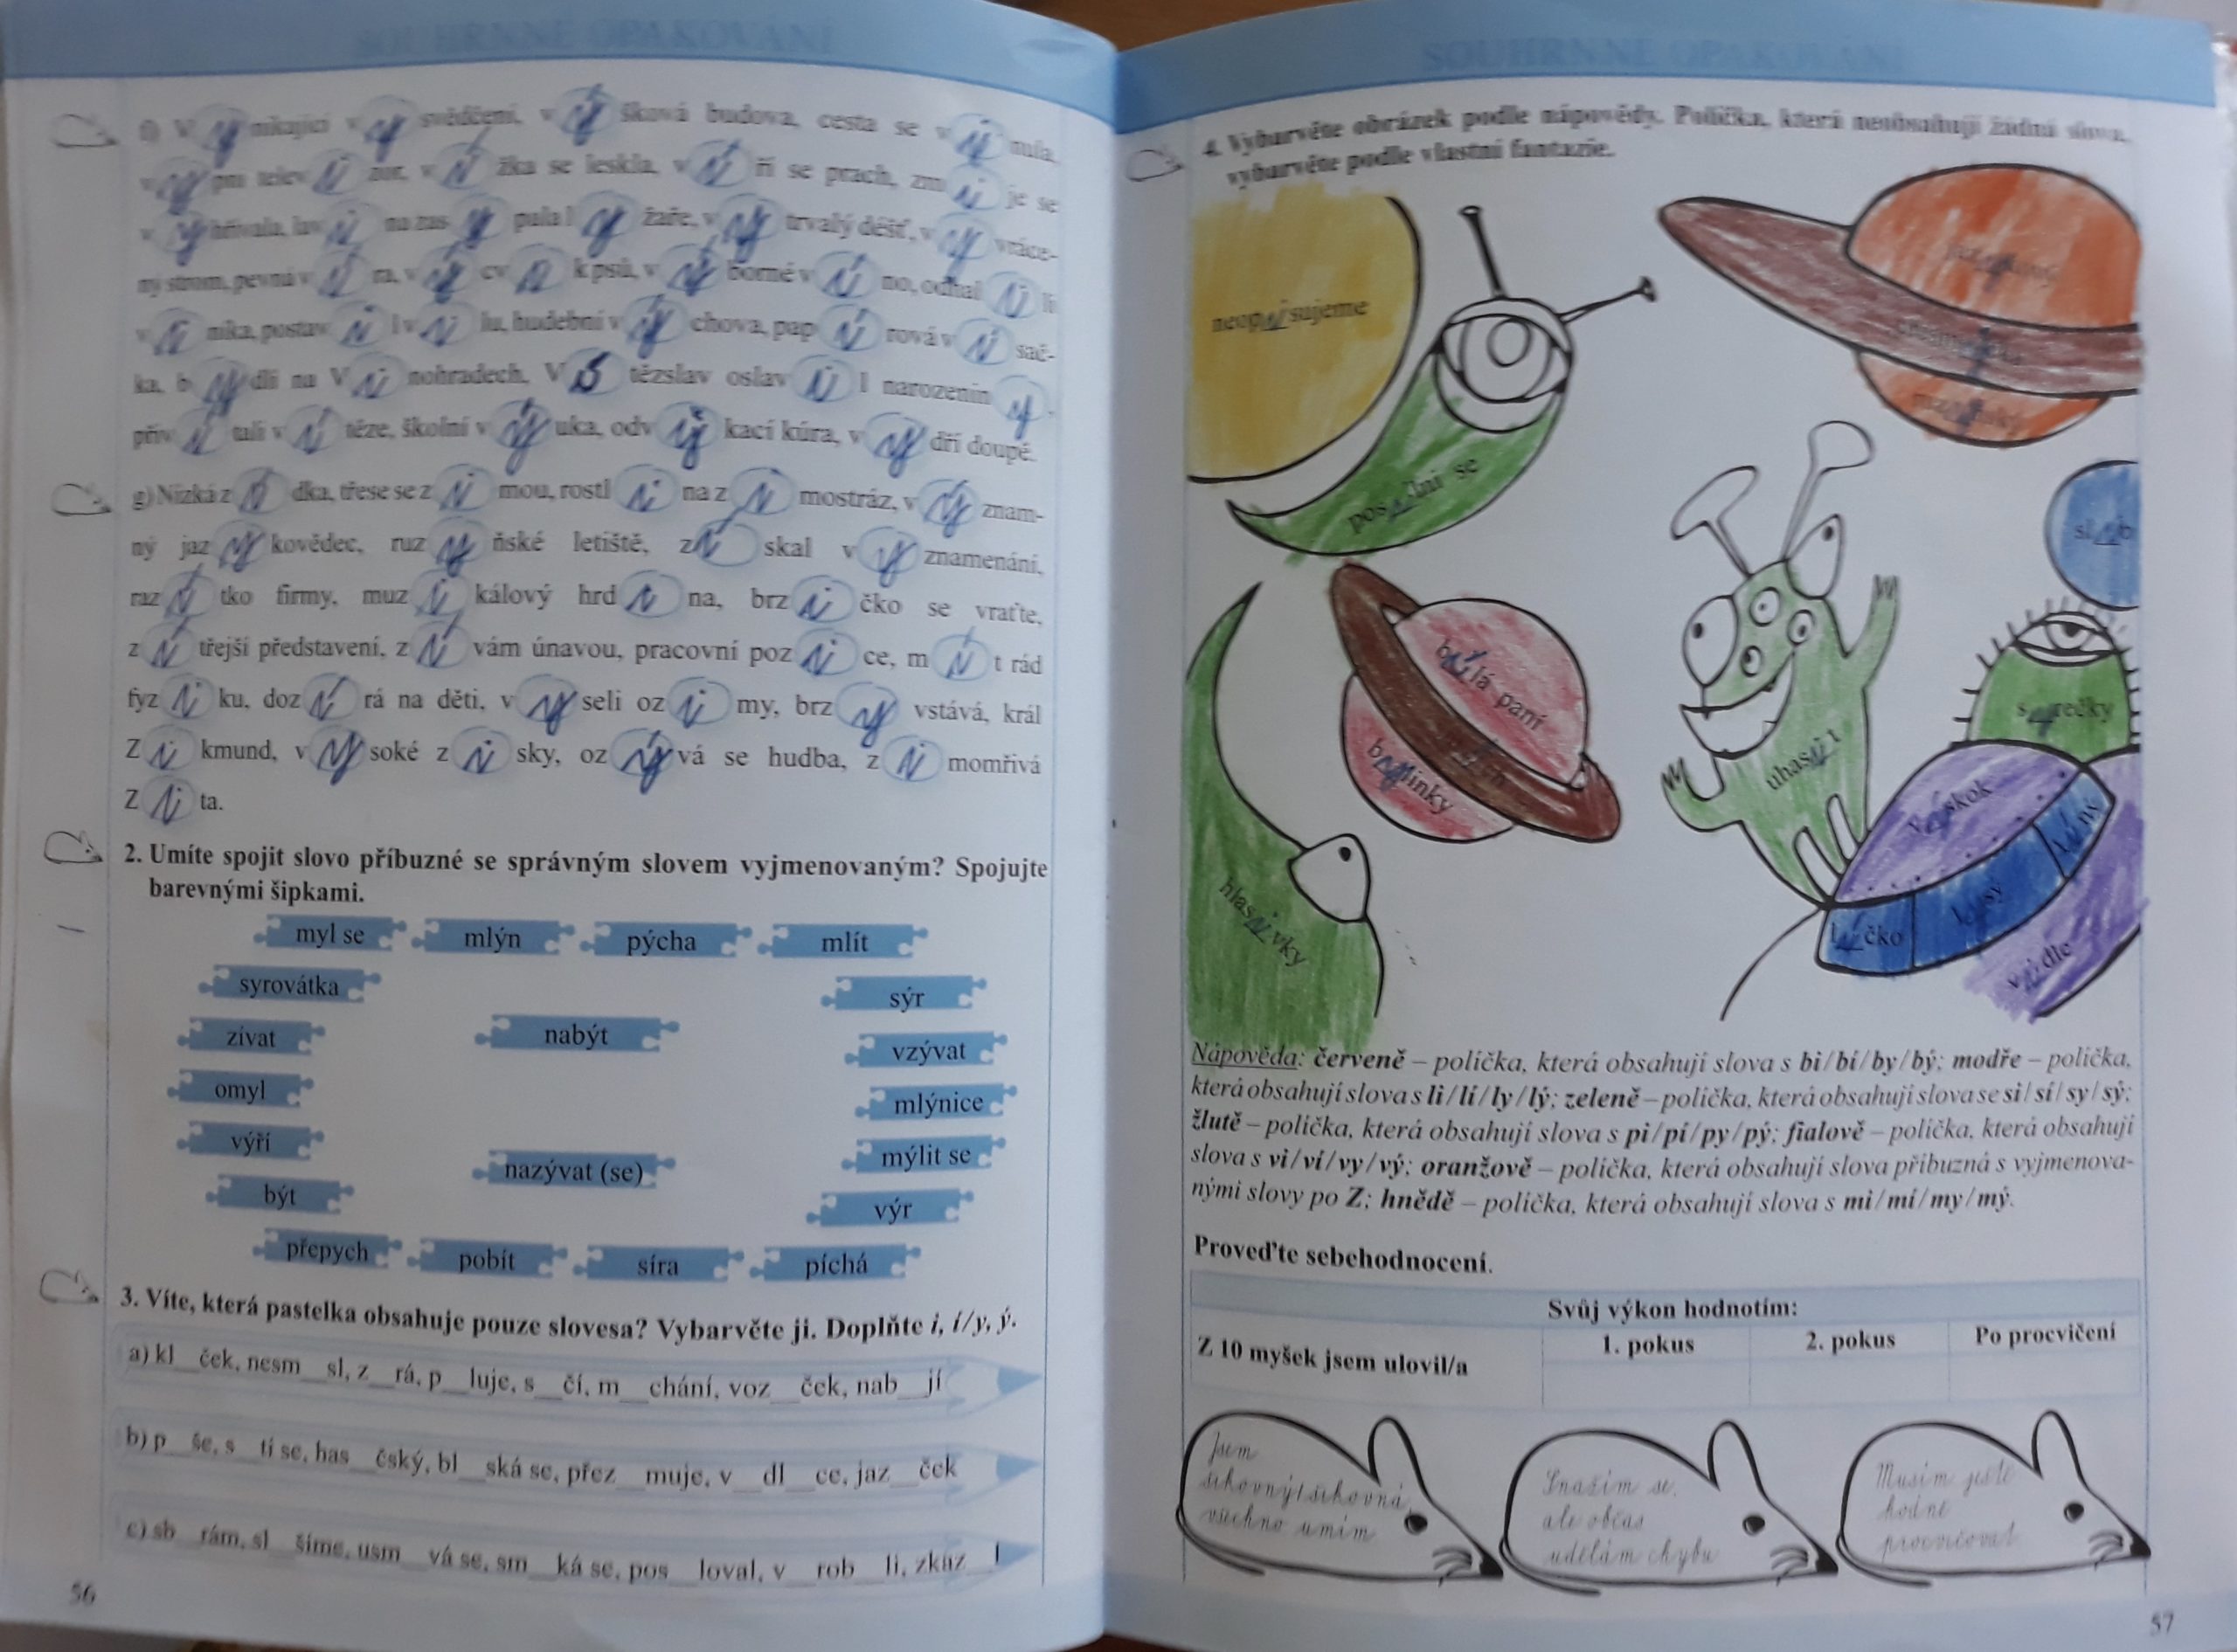 SOUHRNNÉ OPAKOVÁNÍ
f) Vynikající vysvědčení, výšková budova, cesta se vinula,
vypni televizor, vížka se leskla, víří se prach, zmije se
vyhřívala, lavina zasypala lyžaře, vytrvalý déšť, vyvráce-
ný strom, pevná víra, výcvik psů, výborné víno, odhalili
viníka, postavil vilu, hudební výchova, papírová visač-
ka, bydlí na Vinohradech, Vítězslav oslavil narozeniny,
přivítali vítěze, školní výuka, odvykací kúra, vydří doupě.
g) Nízká zídka, třese se zimou, rostlina z zimostráz, význam-
ný jazykovědec, ruzyňské letiště, získal vyznamenání,
razítko firmy, muzikálový hrdina, brzičko se vraťte,
zítřejší představení, zívám únavou, pracovní pozice, mít rád
fyziku, dozírá na děti, vyseli ozimy, brzy vstává, král
Zikmund, vysoké zisky, ozývá se hudba, zimomřivá
Zita.
2. Umíte spojit slovo příbuzné se správným slovem vyjmenovaným? Spojujte
barevnými šipkami.
myl se mlýn pýcha mlít
syrovátka sýr
zívat nabýt vzývat
omyl mlýnice
výří nazývat (se) mýlit se
být výr
přepych pobít síra píchá
3. Víte, která pastelka obsahuje pouze slovesa? Vybarvěte ji. Doplňte i, í/y, ý.
a) kl__ček, nesm__sl, z__rá, p__luje, s__čí, m__chání, voz__ček, nab__jí
b) p__še, s__tí se, has__čský, bl__ská se, přez__muje, v__dl__ce, jaz__ček
c) sb__rám, sl__šíme, usm__vá se, sm__ká se, pos__loval, v__rob__li, zkaz__l
56
SOUHRNNÉ OPAKOVÁNÍ
4. Vybarvěte obrázek podle nápovědy. Políčka, která neobsahují žádná slova,
vybarvěte podle vlastní fantazie.
neopisujeme
posilni se
slib
bílá paní
bylinky
syrečky
uhasil
výskok
líný
hlasivky
líčko
lysý
vidle
Nápověda: červeně – políčka, která obsahují slova s bi/bí/by/bý; modře – políčka,
která obsahují slova s li/lí/ly/lý; zeleně – políčka, která obsahují slova se si/sí/sy/sý;
žlutě – políčka, která obsahují slova s pi/pí/py/pý; fialově – políčka, která obsahují
slova s vi/ví/vy/vý; oranžově – políčka, která obsahují slova příbuzná s vyjmenova-
nými slovy po Z; hnědě – políčka, která obsahují slova s mi/mí/my/mý.
Proveďte sebehodnocení.
Svůj výkon hodnotím:
Z 10 myšek jsem ulovil/a 1. pokus 2. pokus Po procvičení
Jsem
šikovný/šikovná,
všechno umím
Snažím se,
ale občas
udělám chybu
Musím ještě
hodně
procvičovat
57